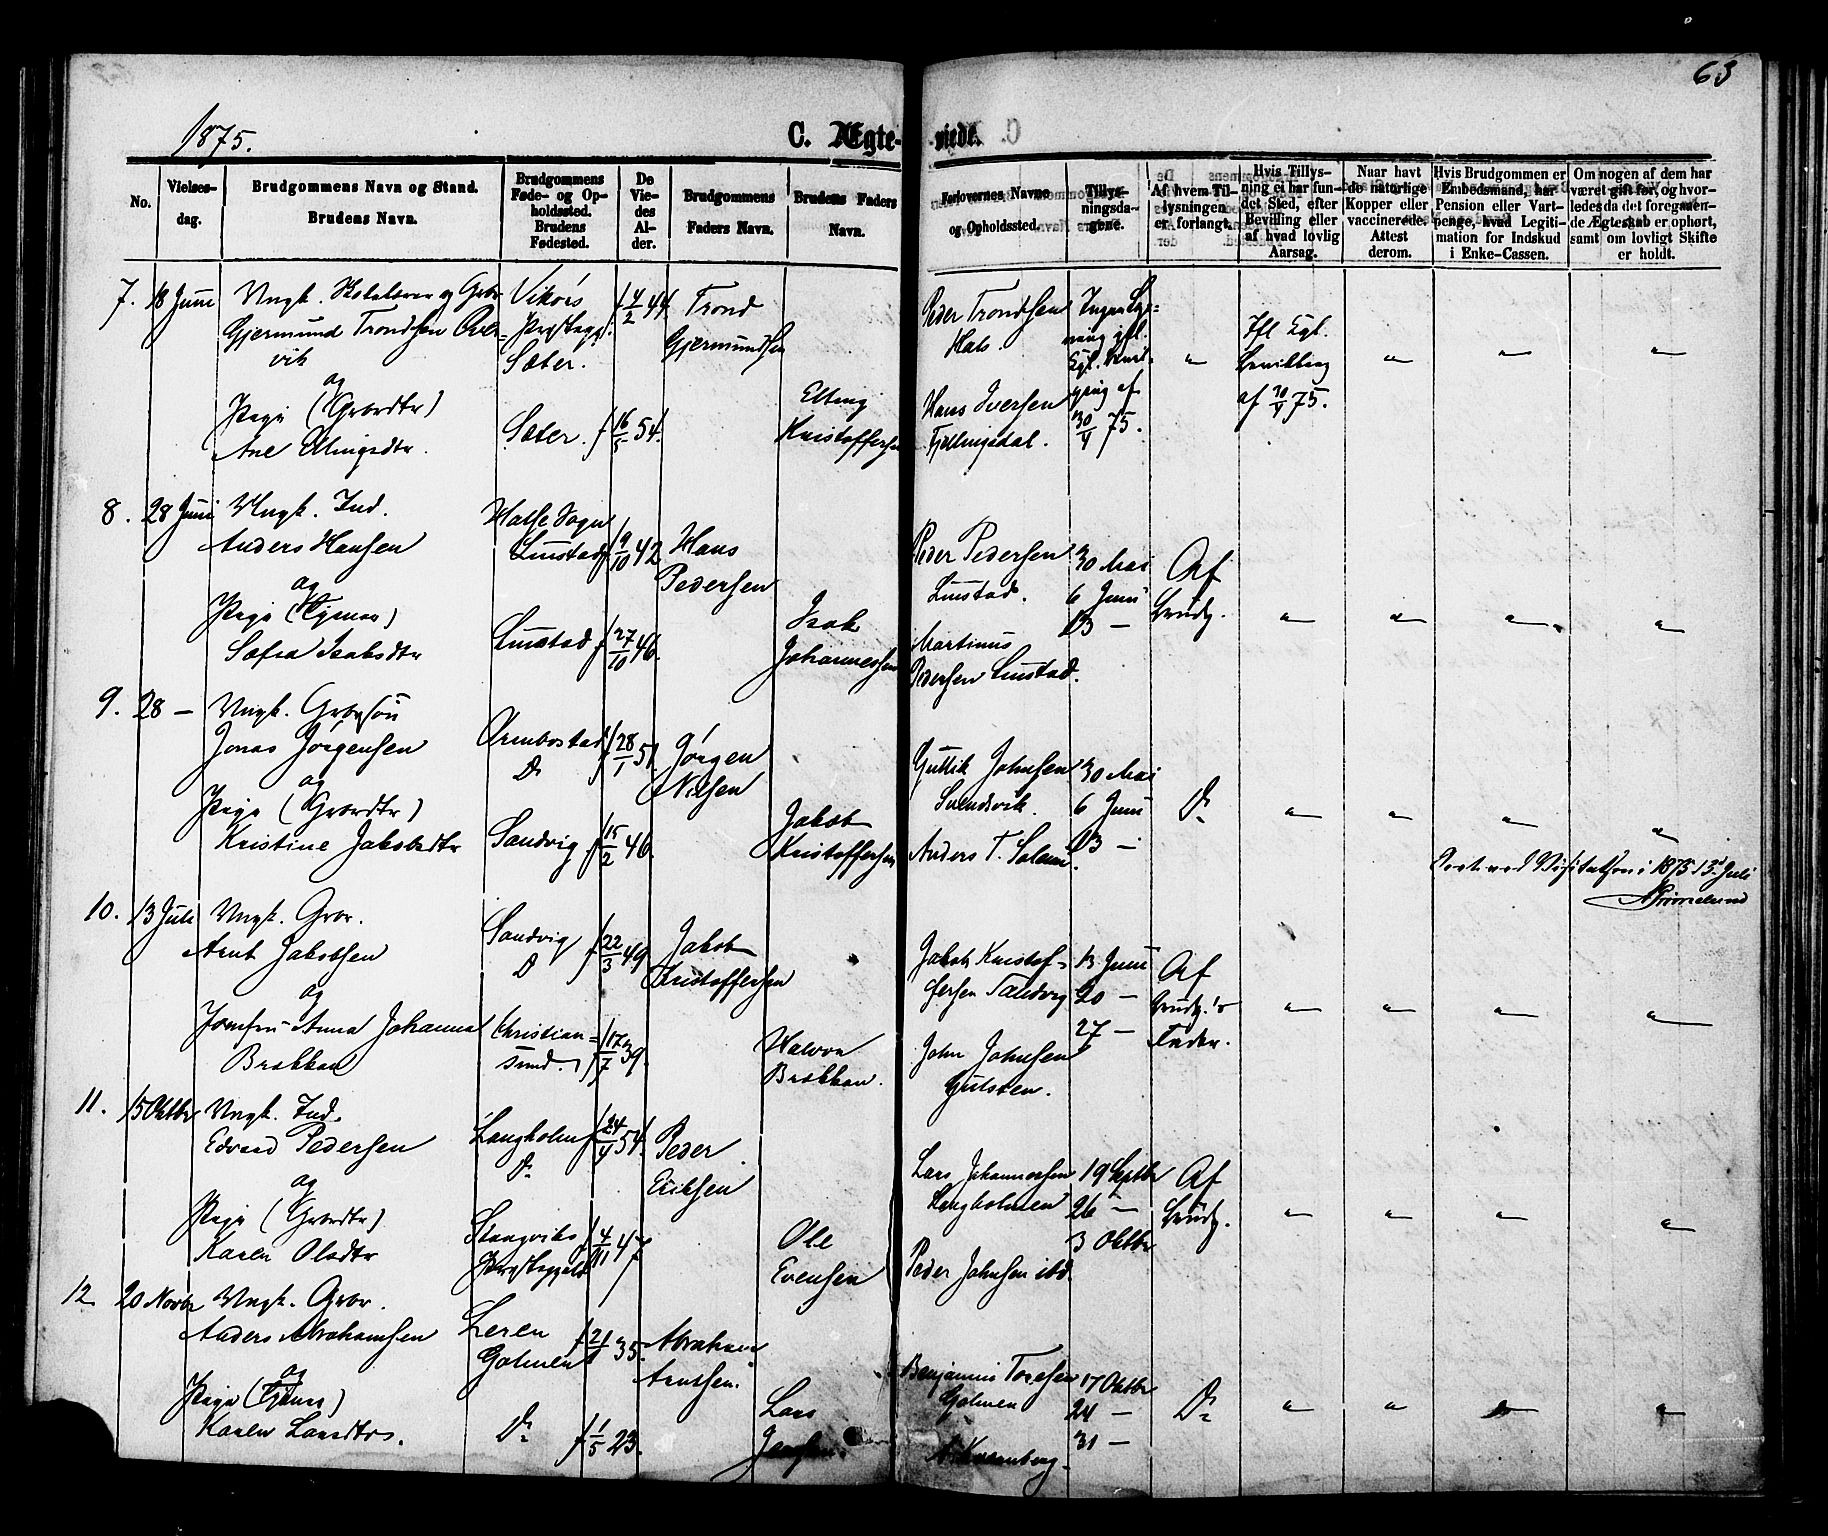 63
1875.
C. Ægte-
viede.
No.
Vielses-
dag.
Brudgommens Navn og Stand.
Brudens Navn.
Brudgommens
Føde- og Op-
holdssted.
Brudens
Fødested.
De
Vie-
des
Al-
der.
Brudgommens
Faders Navn.
Brudens Faders
Navn.
Forlovernes Navne
og Opholdssted.
Tillys-
ningsda-
gene.
Af hvem Til-
lysningen
er forlangt.
Hvis Tillys-
ning ei har fun-
det Sted, efter
Bevilling eller
af hvad lovlig
Aarsag.
Naar havt
de naturlige
Kopper eller
vaccinerede.
Attest
derom.
Hvis Brudgommen er
Embedsmand, har
Pension eller Vart-
penge, hvad Legiti-
mation for Indskud
i Enke-Cassen.
Om nogen af dem har
været gift før, og hvor-
ledes da det foregaaen-
de Ægteskab er ophørt,
samt om lovligt Skifte
er holdt.
7. 18 Juni
Ungk. og Gbr
Gjermund Trondsen Øver-
vik
og
Pige (Gbrdtr)
Ane Ellingsdtr.
Vikørs
Præstegj.
Sæter.
Sæter.
f 4/2 44.
f 16/5 54.
Trond
Gjermundsen
Elling
Kristoffersen
Peder Trondsen
Hals.
Hans Iversen
Fjellingsdal.
Ingen Lys-
ning
af
30/V 75.
"
Ifl Kgl.
Bevilling
af 30/V 75.
" " "
8. 28 Juni
Ungk. Ind.
Anders Hansen
og
Pige (Tjener)
Sofia Isaksdtr
Halse Sogn
Liustad
Liustad
f 9/10 42
f 27/10 46.
Hans
Pedersen
Isak
Johannessen
Peder Pedersen
Liustad.
Martinus
Pedersen Liustad.
30 Mai
6 Juni
13 —
Af
Brudg.
" " " "
9. 28 —
Ungk. Gbrsøn
Jonas Jørgensen
og
Pige (Gbrdtr)
Kristine Jakobsdtr
Ørmbostad
Do
Sandvig
f 28/1 51.
f 15/2 46.
Jørgen
Nilsen
Jakob
Kristoffersen
Guttik Johnsen
Svendsvik.
Anders T. Solem.
30 Mai
6 Juni
13 —
Do
" " " "
ved Visitatsen i 1875 13de Juli
10. 13 Juli
Ungk. Gbr.
Arnt Jakobsen
og
Jomfru Anna Johanna
Brækkan
Sandvig
Do
Christian-
sund.
f 22/3 49
f 17/7 39.
Jakob
Kristoffersen
Halvor
Brækkan.
Jakob Kristof-
fersen Sandvig
John Johnsen
Gulsten.
13 Juni
20 —
27 —
Af
Brudg.'s
Fader.
" " " "
11. 15 Oktbr
Ungk. Ind.
Edvard Pedersen
og
Pige (Gbrdtr)
Karen Olsdtr
Langholm
Do
Stangviks
Præstegjeld
f 24/4 54.
f 4/11 47
Peder
Eriksen
Ole
Evensen
Lars Johannessen
Langholmen
Peder Johnsen ibd.
19 Septbr
26 —
3 Oktbr
Af
Brudg.
" " " "
12. 20 Novbr
Ungk. Gbr.
Anders Abrahamsen
og
Pige (Tjener)
Karen Larsdtr.
Leren
Golmen
Do
35.
f 1/5 23.
Abraham
Arntsen.
Lars
Benjamin Toresen
Golmen
17 Oktbr
24 —
31 —
Do
" " " "